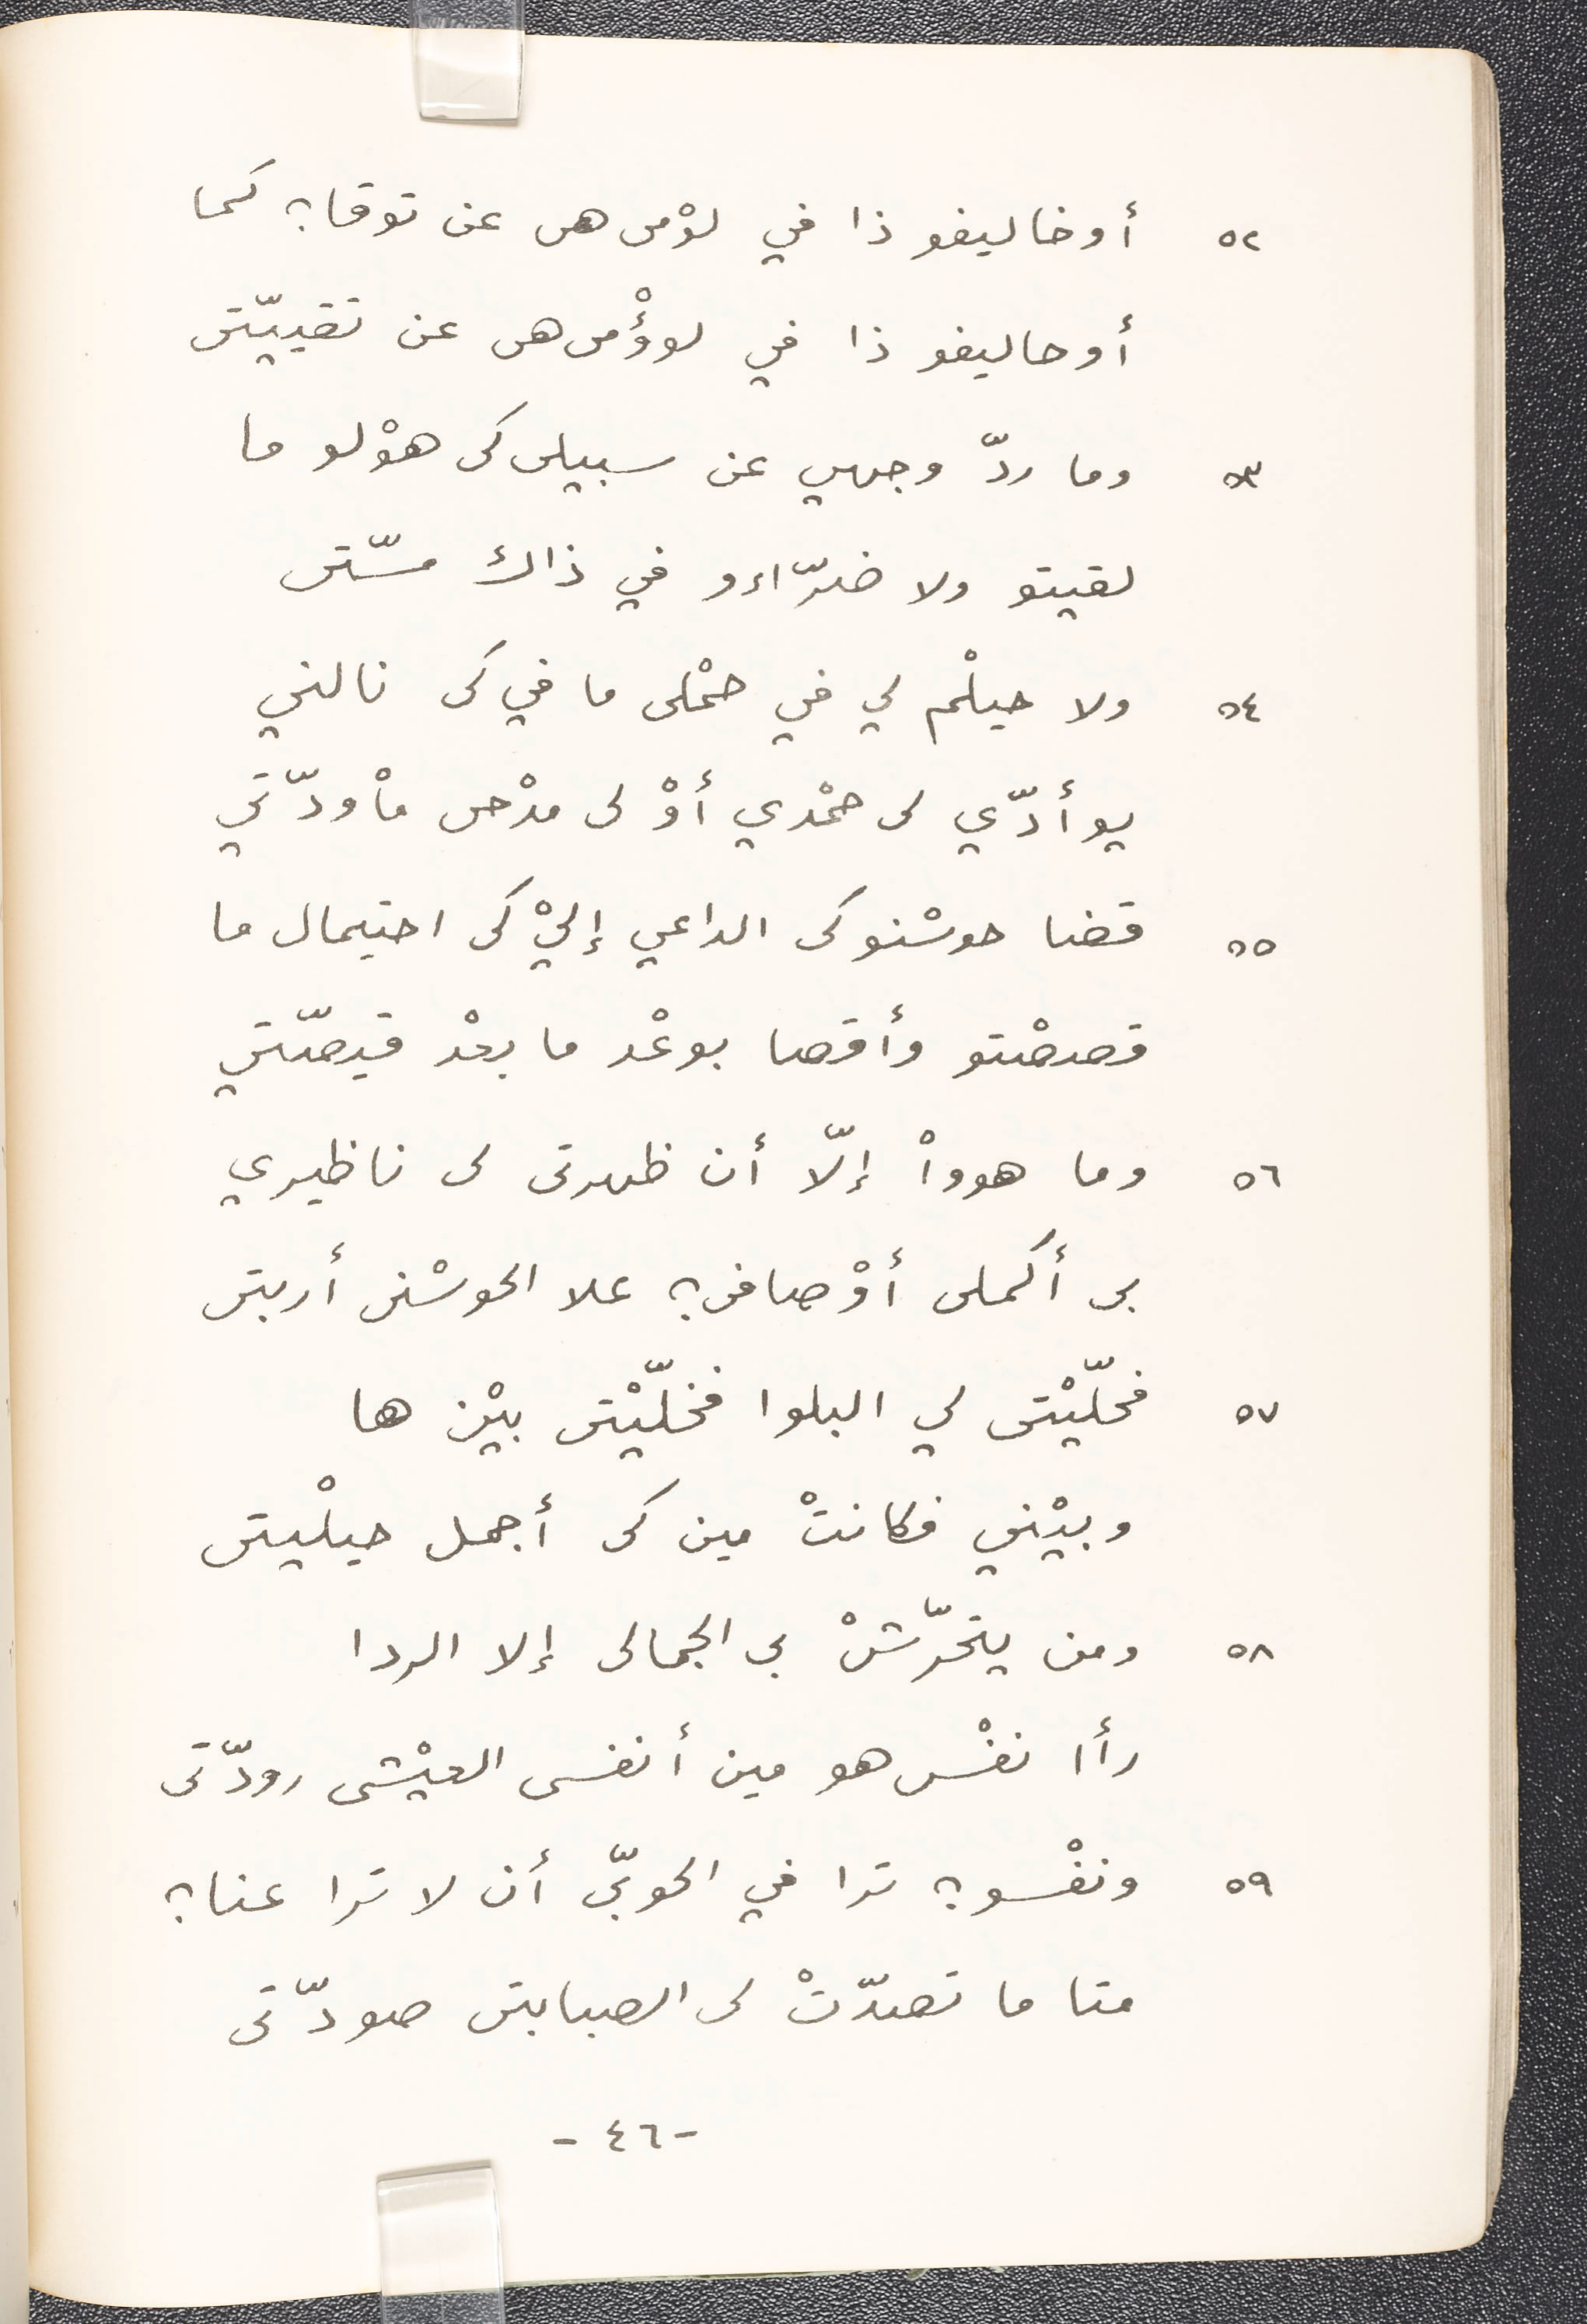 ٥٢ أوخاليفو ذا في لوْمى هى عن توقا؟ كما
أوحاليفو ذا في لوؤْمى هى عن تقييّتى
٥٣ وما ردّ وجهي عن سبيلى كى هوْلو ما
لقيتو ولا ضرّاءو في ذاك مسّتى
٥٤ ولا حيلْم لي في حمْلى ما في كى نالني
يوأدّي لى حمْدي أوْ لى مدْحى مْاودّتي
٥٥ قضا حوسْنوكى الداعي إليْ كى احتيمال ما
قصصْتو وأقصا بوعْد ما بعْد قيصّتي
٥٦ وما هوواْ إلّا أن ظهرتى لى ناظيري
بى أكملى أوْصافى؟ علا الحوسْنى أربتى
٥٧ فحلّيْتى لي البلوا فخلّيْتى بيْن ها
وبيْني فكانتْ مين كى أجمل حيلْيتى
٥٨ ومن يتحرّشْ بى الجمالى إلا الردا
رأا نفْس هو مين أنفسى العيْشى رودّتى
٥٩ ونفْسو؟ ترا في الحوبّى أن لا ترا عنا؟
متا ما تصدّتْ لى الصبابتى صودّتى
-٤٦-